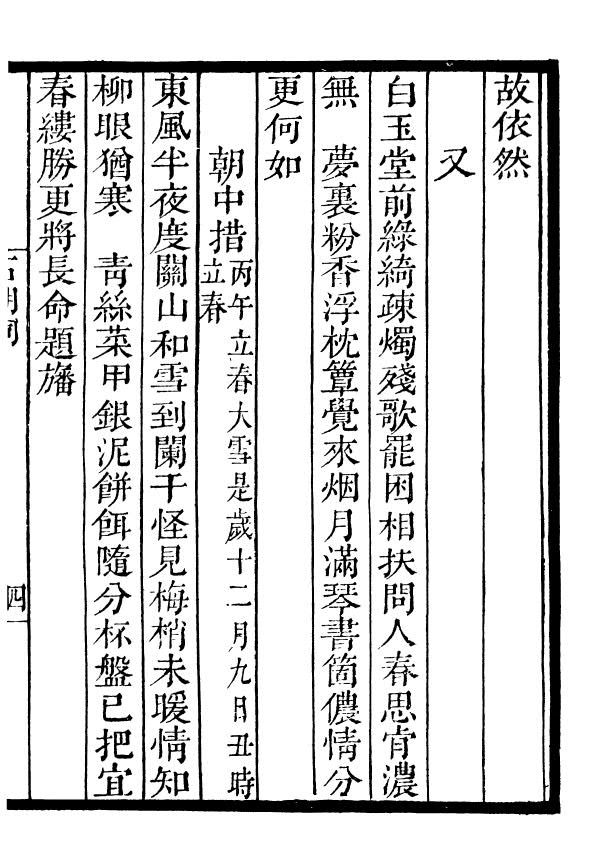 故依然
又
白玉堂前綠綺疎燭殘歌罷困相扶問人春思肯濃
無　夢裏粉香浮枕簟覺來烟月滿琴書箇儂情分
更何如
朝中措丙午立春大雪是歲十二月九日丑時
立春
東風半夜度關山和雪到闌干怪見梅梢未暖情知
柳眼猶寒　青絲菜甲銀泥餅餌隨分杯盤已把宜
春縷勝更將長命題旛